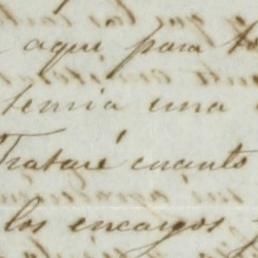 aqui para
temia una
Trataré cuanto
los encargos